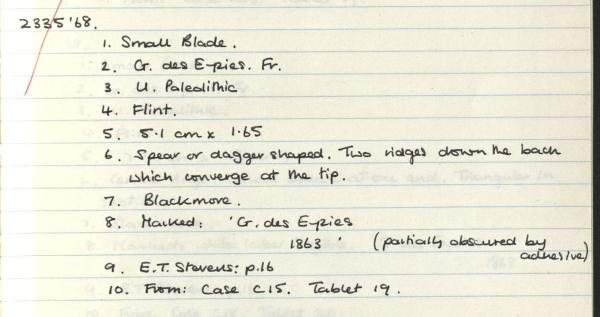 2335'68.
1. Small Blade.
2. G. des Eyzies. Fr.
3. U. Paleolithic
4. Flint.
5. 5.1 cm x 1.65
6. Spear or dagger shaped. Two ridges down the back
which converge at the tip.
7. Blackmore.
8. Marked: 'G. des Eyzies
1863' (partially obscured by
adhesive)
9. E.T. Stevens: p.16
10. From: Case C15. Tablet 19.